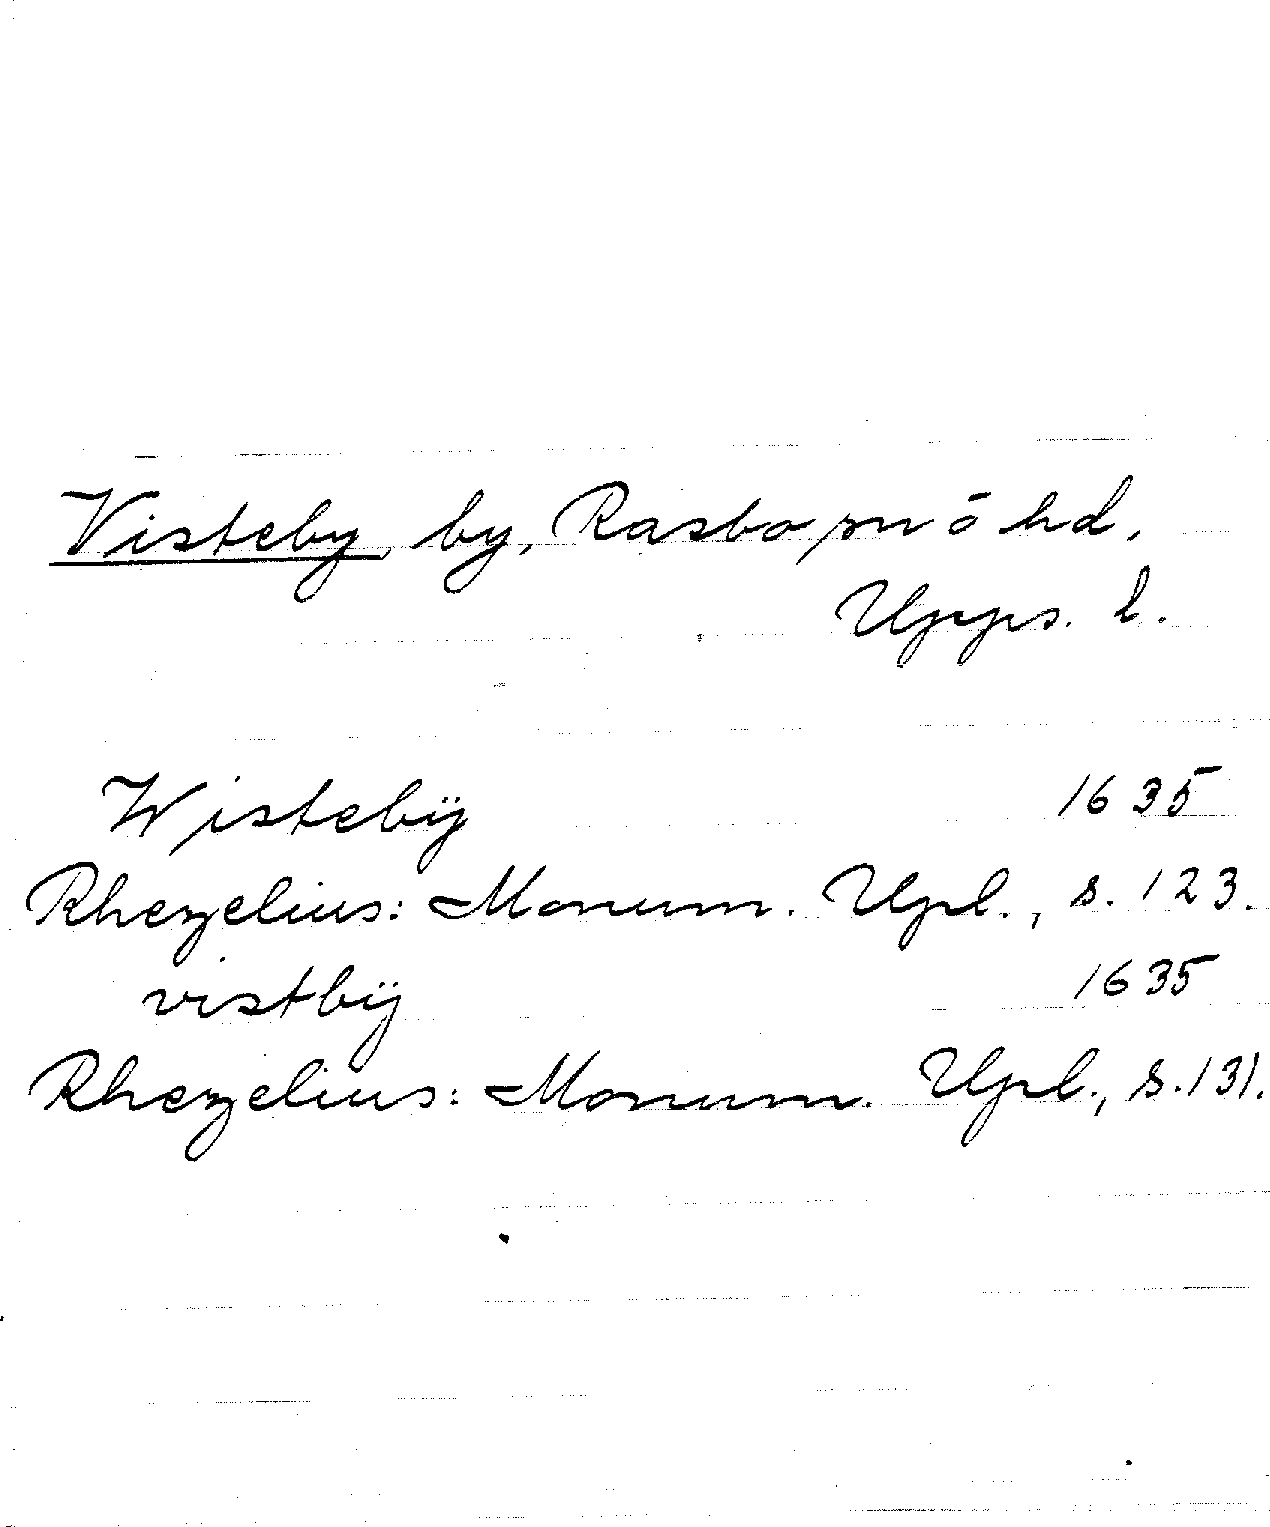 Visteby, by, Rasbo sn o hd.
Upps. l.
Wistebÿ 1635
Rhezelius: Monum. Upl., s. 123.
vistbÿ 1635
Rhezelius: Monum. Upl., s. 131.